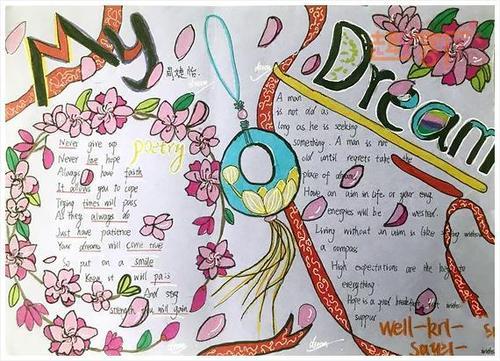 My
Dream
poetry
Never give up
Never lose hope
Always have faith
It allows you to cope
Trying times will pass
As they always do
Just have patience
Your dreams will come true
So put on a smile
Know it will pass
And
strength you will gain
A man
is not old as
long as he is seeking
something. A man is not
old until regrets take the
place of
Have an aim in life or your
energies will be
Living without an aim is like
a compass
High expectations are the key to
everything
Hope is a good breakfast
supper